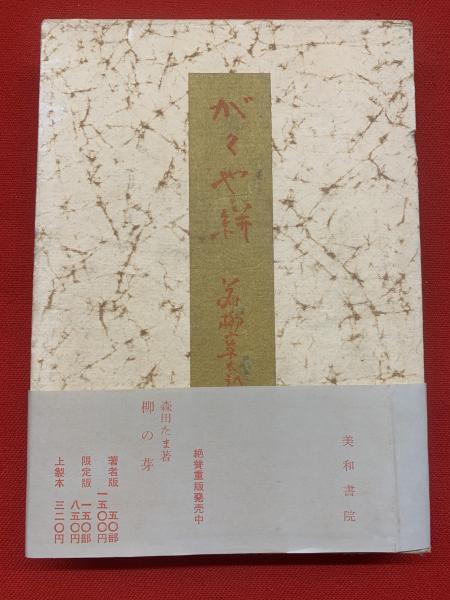 がくや絣
花柳章太郎
美和書院
絶賛重版発売中
森田たま著
柳の芽
著者版 五〇部
一五〇〇円
限定版 一五〇部
八五〇円
上製本 三二〇円